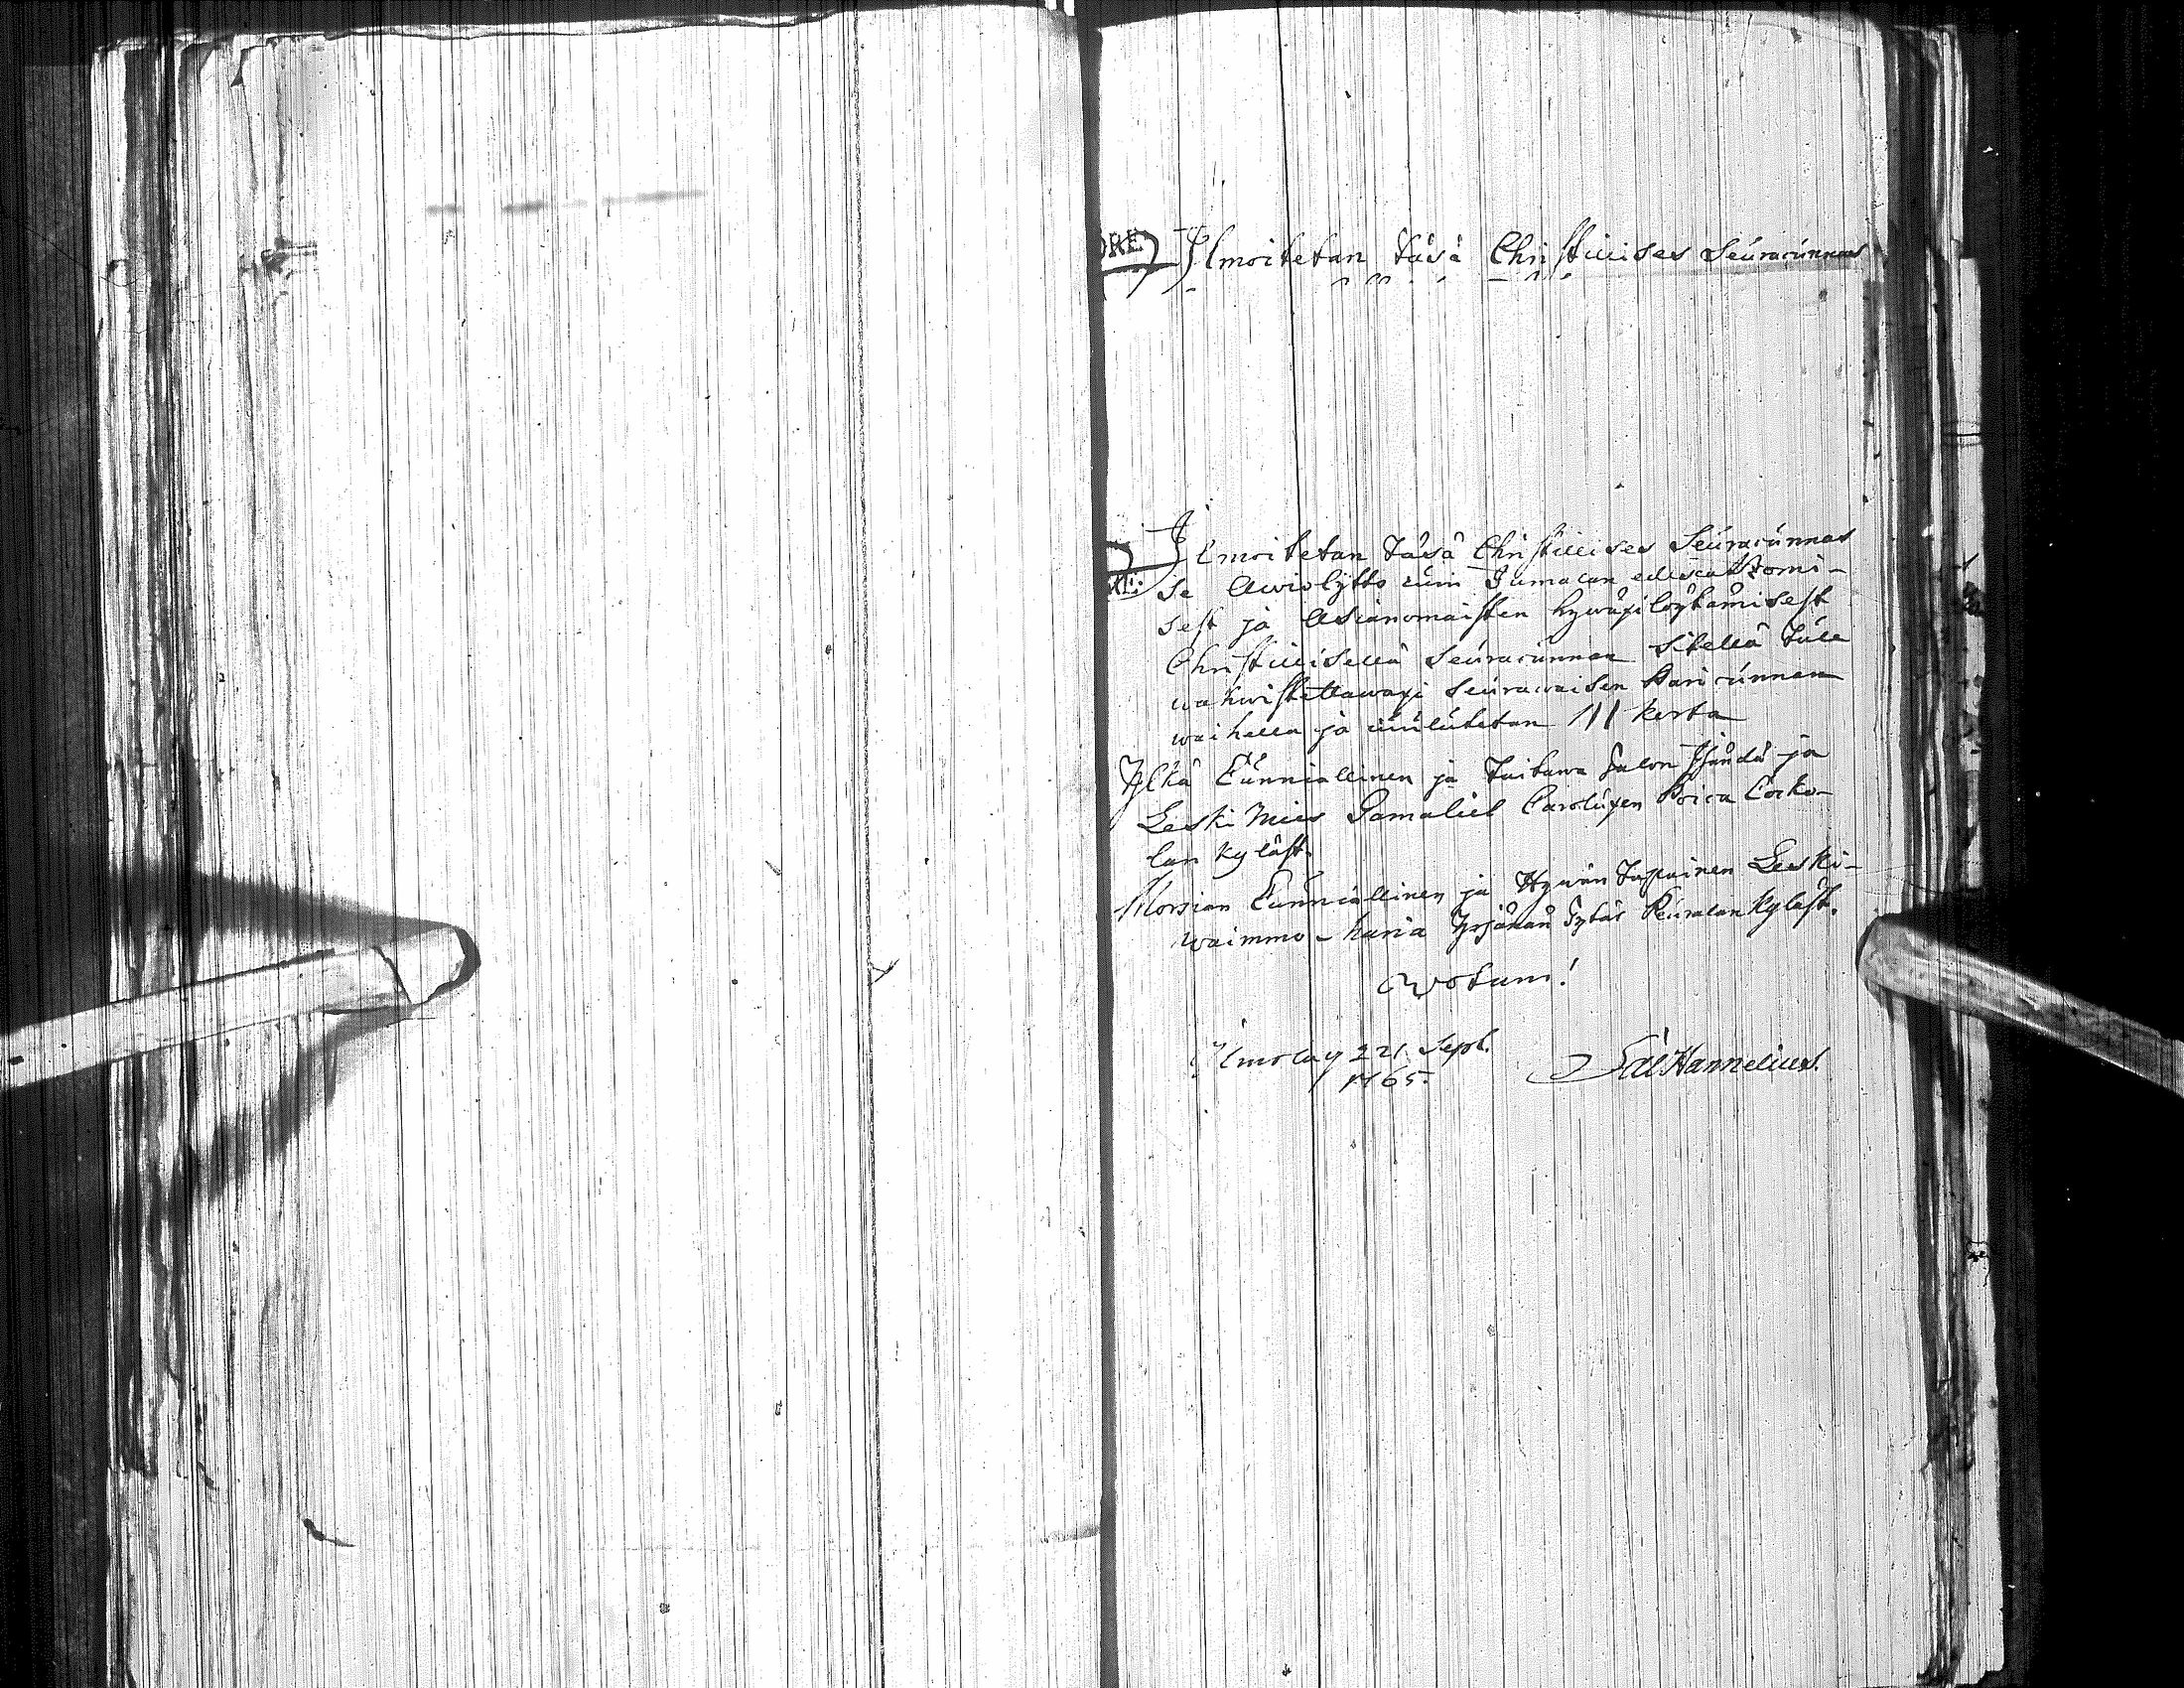 Ilmoitetan täsä Christillises Seuracunnas
Ilmoitetan täsä Christillises Seuracunnas
se Awiolijtto cuin Jumalan edescatzomi-
sest ja Asianomaisten hywäxilöytämisest
Christillisellä Seuracunnan sitellä tule
wahwistettawaxi seurawaisen Paricunnan
waihella ja cuulutetan III kerta
Yljkä Cunniallinen ja Taitawa Talon Isändä ja
Leski Mies Gamaliel Caroluxen Poica Corko-
lan kyläst.
Morsian Cunniallinen ja Hywän Tapainen Leski-
waimmo Yrjänän Tytär Peuralan Kyläst.
Wotum!
221 Sept.
1765.
Hannelius.